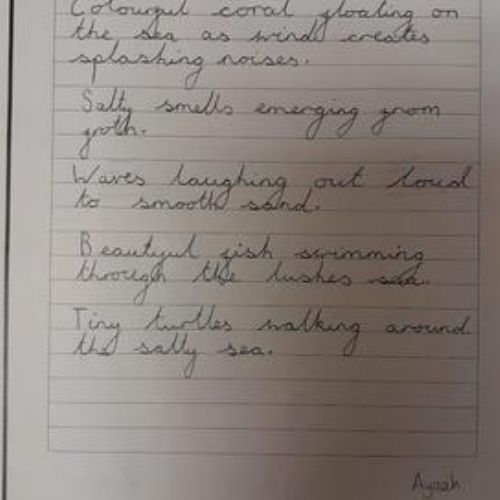 Colourful coral floating on
the sea as wind creates
splashing noises.
Salty smells emerging from
froth.
Waves laughing out loud
to smooth sand.
Beautyful fish swimming
through the lushes sea.
Tiny turtles walking around
the salty sea.
Ayaah